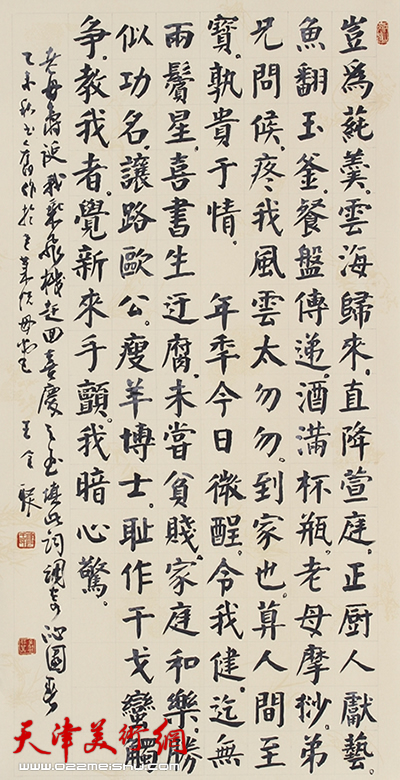 豈爲蒓羹。雲海歸來。直降萱庭。正厨人獻藝。
魚翻玉釜。餐盤傳遞。酒滿杯瓶。老母摩挲。弟
兄問候。疼我風雲太勿勿。到家也。算人間至
寶。孰貴于情。 年秊今日微醒。令我健。迄無
兩鬢星。喜書生迂腐。未嘗貧賤。家庭和樂。勝
似功名。讓路歐公。瘦羊博士。耻作干戈蠻觸
争。教我者。覺新來手顫。我暗心驚。
老母壽誕我乘飛機 喜慶之 填此詞調寄沁園春
乙未秋書舊作於
天津美術網
www.022meishu.com